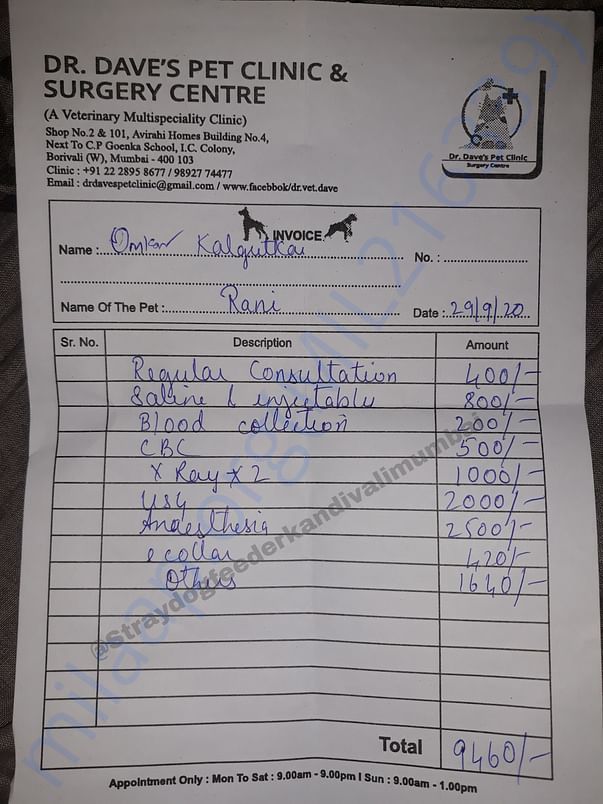 DR. DAVE'S PET CLINIC &
SURGERY CENTRE
(A Veterinary Multispeciality Clinic)
Shop No.2 & 101, Avirahi Homes Building No.4,
Next To C.P Goenka School, I.C. Colony,
Borivali (W), Mumbai - 400 103
Clinic : +91 22 2895 8677 / 98927 74477
Email : drdavespetclinic@gmail.com / www.facebbok/dr.vet.dave
Dr. Dave's Pet Clinic
Surgery Centre
INVOICE
Name : Omkar Kalgutkar No. :
Name Of The Pet : Rani Date : 29/9/20
Sr. No. Description Amount
Regular Consultation 400/-
Saline & injectable 800/-
Blood collection 200/-
CBC 500/-
X Ray x 2 1000/-
USG 2000/-
Anaesthesia 2500/-
e collar 420/-
Others 1640/-
Total 9460/-
Appointment Only : Mon To Sat : 9.00am - 9.00pm I Sun : 9.00am - 1.00pm
@Straydogfeederkandivalimumbai